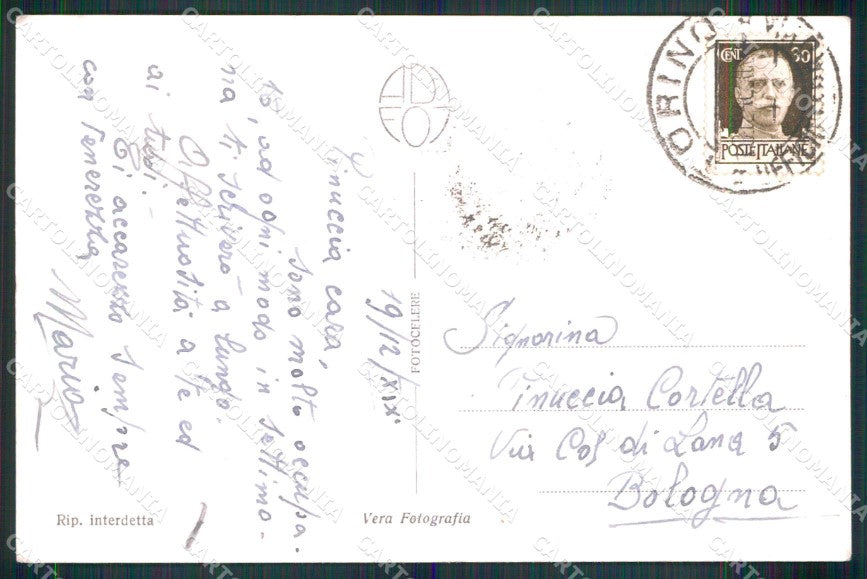 19/12/XIX
Pinuccia cara,
sono molto occupa-
to, ad ogni modo in settima-
na ti scriverò a lungo.
Affettuosità a te ed
ai tuoi.-
Ti accarezzo sempre
con tenerezza
Mario
Rip. interdetta
Vera Fotografia
FOTOCELERE
CENT. 30
POSTE ITALIANE
TORINO
Signorina
Pinuccia Cortella
Via Col di Lana 5
Bologna
CARTOLINOMANIA